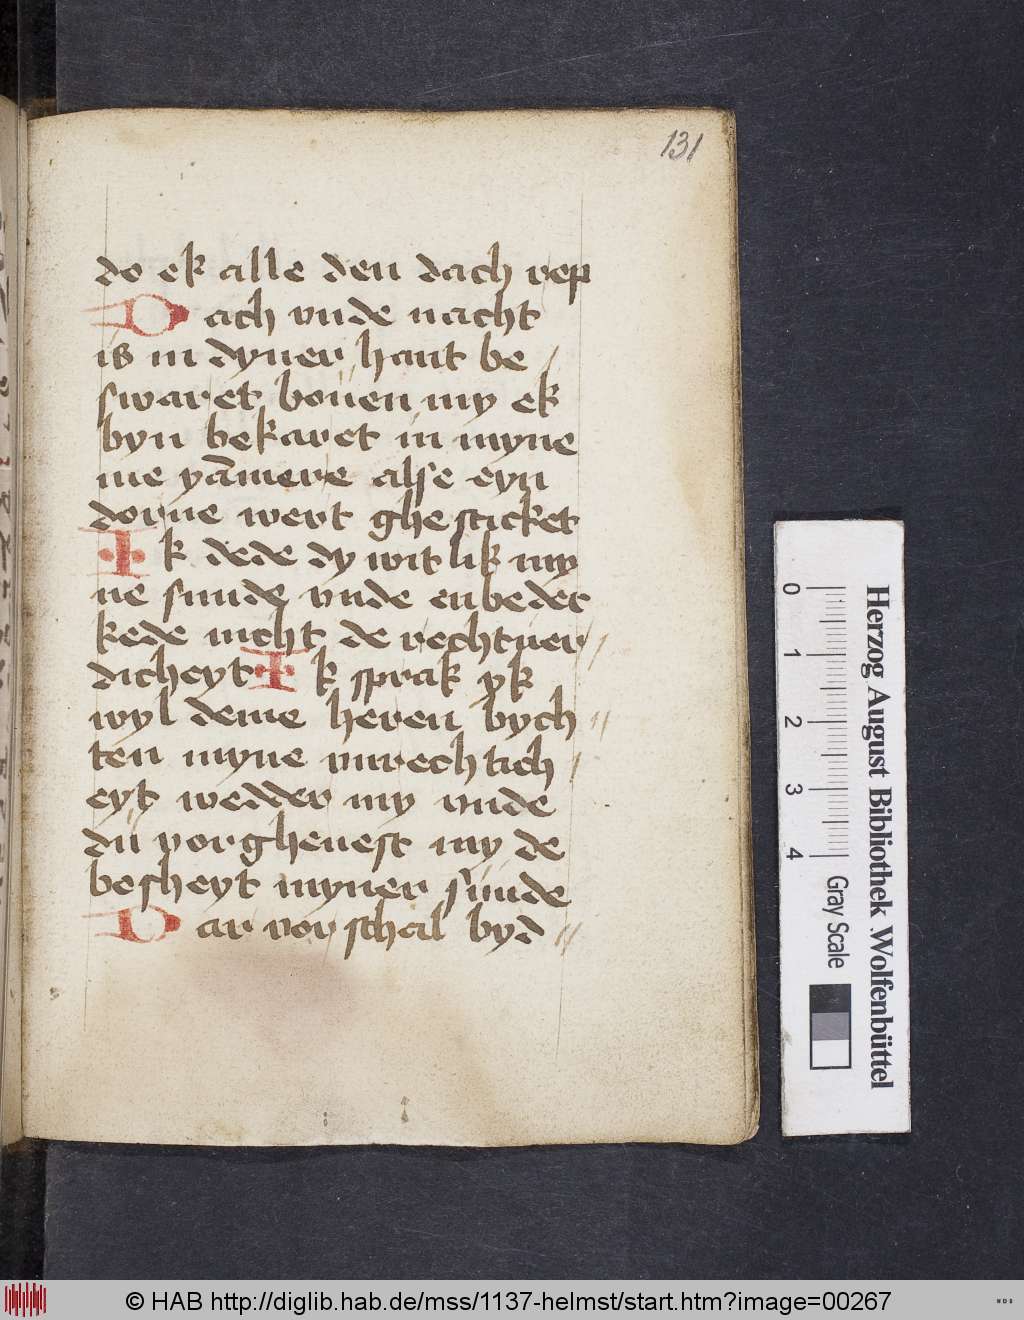 131
do ek alle den dach rep
Dach vnde nacht
is in dyner hant be
swaret bouen my ek
byn bekaret in myne
me yāmere alse eyn
dorne wert ghesticket
Ik dede dy witlik my
ne sunde vnde enbedec
kede nicht de rechtuer
dicheyt Ik sprak yk
wyl deme heren bych
ten myne vnrechtich
eyt wedder my vnde
du vorgheuest my de
bosheyt myner sunde
Dar vor schal byd
Herzog August Bibliothek Wolfenbüttel
0 1 2 3 4 Gray Scale
© HAB http://diglib.hab.de/mss/1137-helmst/start.htm?image=00267